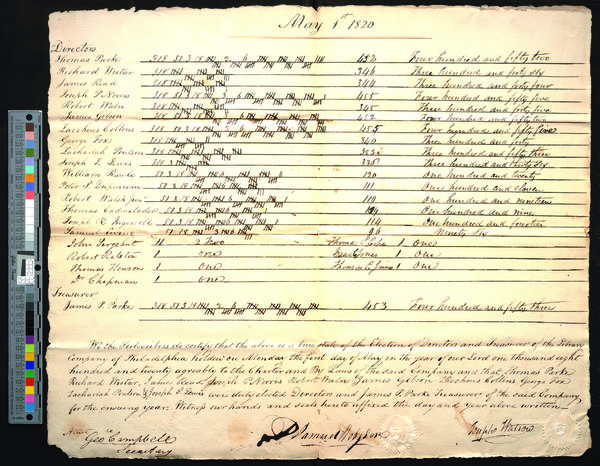 May 1st 1820
Directors
Thomas Parke 318 51 3 18 2 6 452 Four hundred and fifty two
Richard Wistar 318 346 Three hundred and forty six
James Read 318 344 Three hundred and forty four
Joseph P. Norris 318 51 3 18 Four hundred and fifty five
Robert Waln 318 345 Three hundred and forty five
James Gibson 318 51 3 18 6 452 Four hundred and fifty two
Zaccheus Collins 318 51 3 18 2 6 455 Four hundred and fifty five
George Fox 318 340 Three hundred and forty
Zachariah Poulson 318 51 3 Three hundred and fifty three
Joseph S. Lewis 318 3 336 Three hundred and thirty six
William Rawle 51 3 18 6 120 One hundred and twenty
Peter S. Duponceau 51 3 18 6 111 One hundred and eleven
Robert Walsh Junr 51 3 18 6 119 One hundred and nineteen
Thomas Cadwalader 51 3 18 6 109 One hundred and nine
Joseph R. Ingersoll 51 3 18 6 114 One hundred and fourteen
Samuel 51 18 3 6 96 Ninety Six
John Sergeant 11 2 Two Thomas 1 One
Robert Ralston 1 one Isaac Jones 1 One
Thomas Newson 1 one Thomas C. James 1 One
Dr Chapman 1 one
Treasurer
James P. Parke 318 51 3 18 2 6 453 Four hundred and fifty three
We the Subscribers do certify that the above is a true state of the Election of Directors and Treasurer of the Library
Company of Philadelphia holden on Monday the first day of May in the year of our Lord one thousand eight
hundred and twenty agreeably to the Charter and By Laws of the said Company and that Thomas Parke
Richard Wistar, James Read, Joseph P. Norris Robert Waln James Gibson Zaccheus Collins George Fox
Zachariah Poulson & Joseph S. Lewis were duly elected Directors and James P. Parke Treasurer of the said Company
for the ensuing year. Witness our hands and seals hereto affixed the day and year above written
Attest
Geo. Campbell Samuel Joseph Watson
Secretary